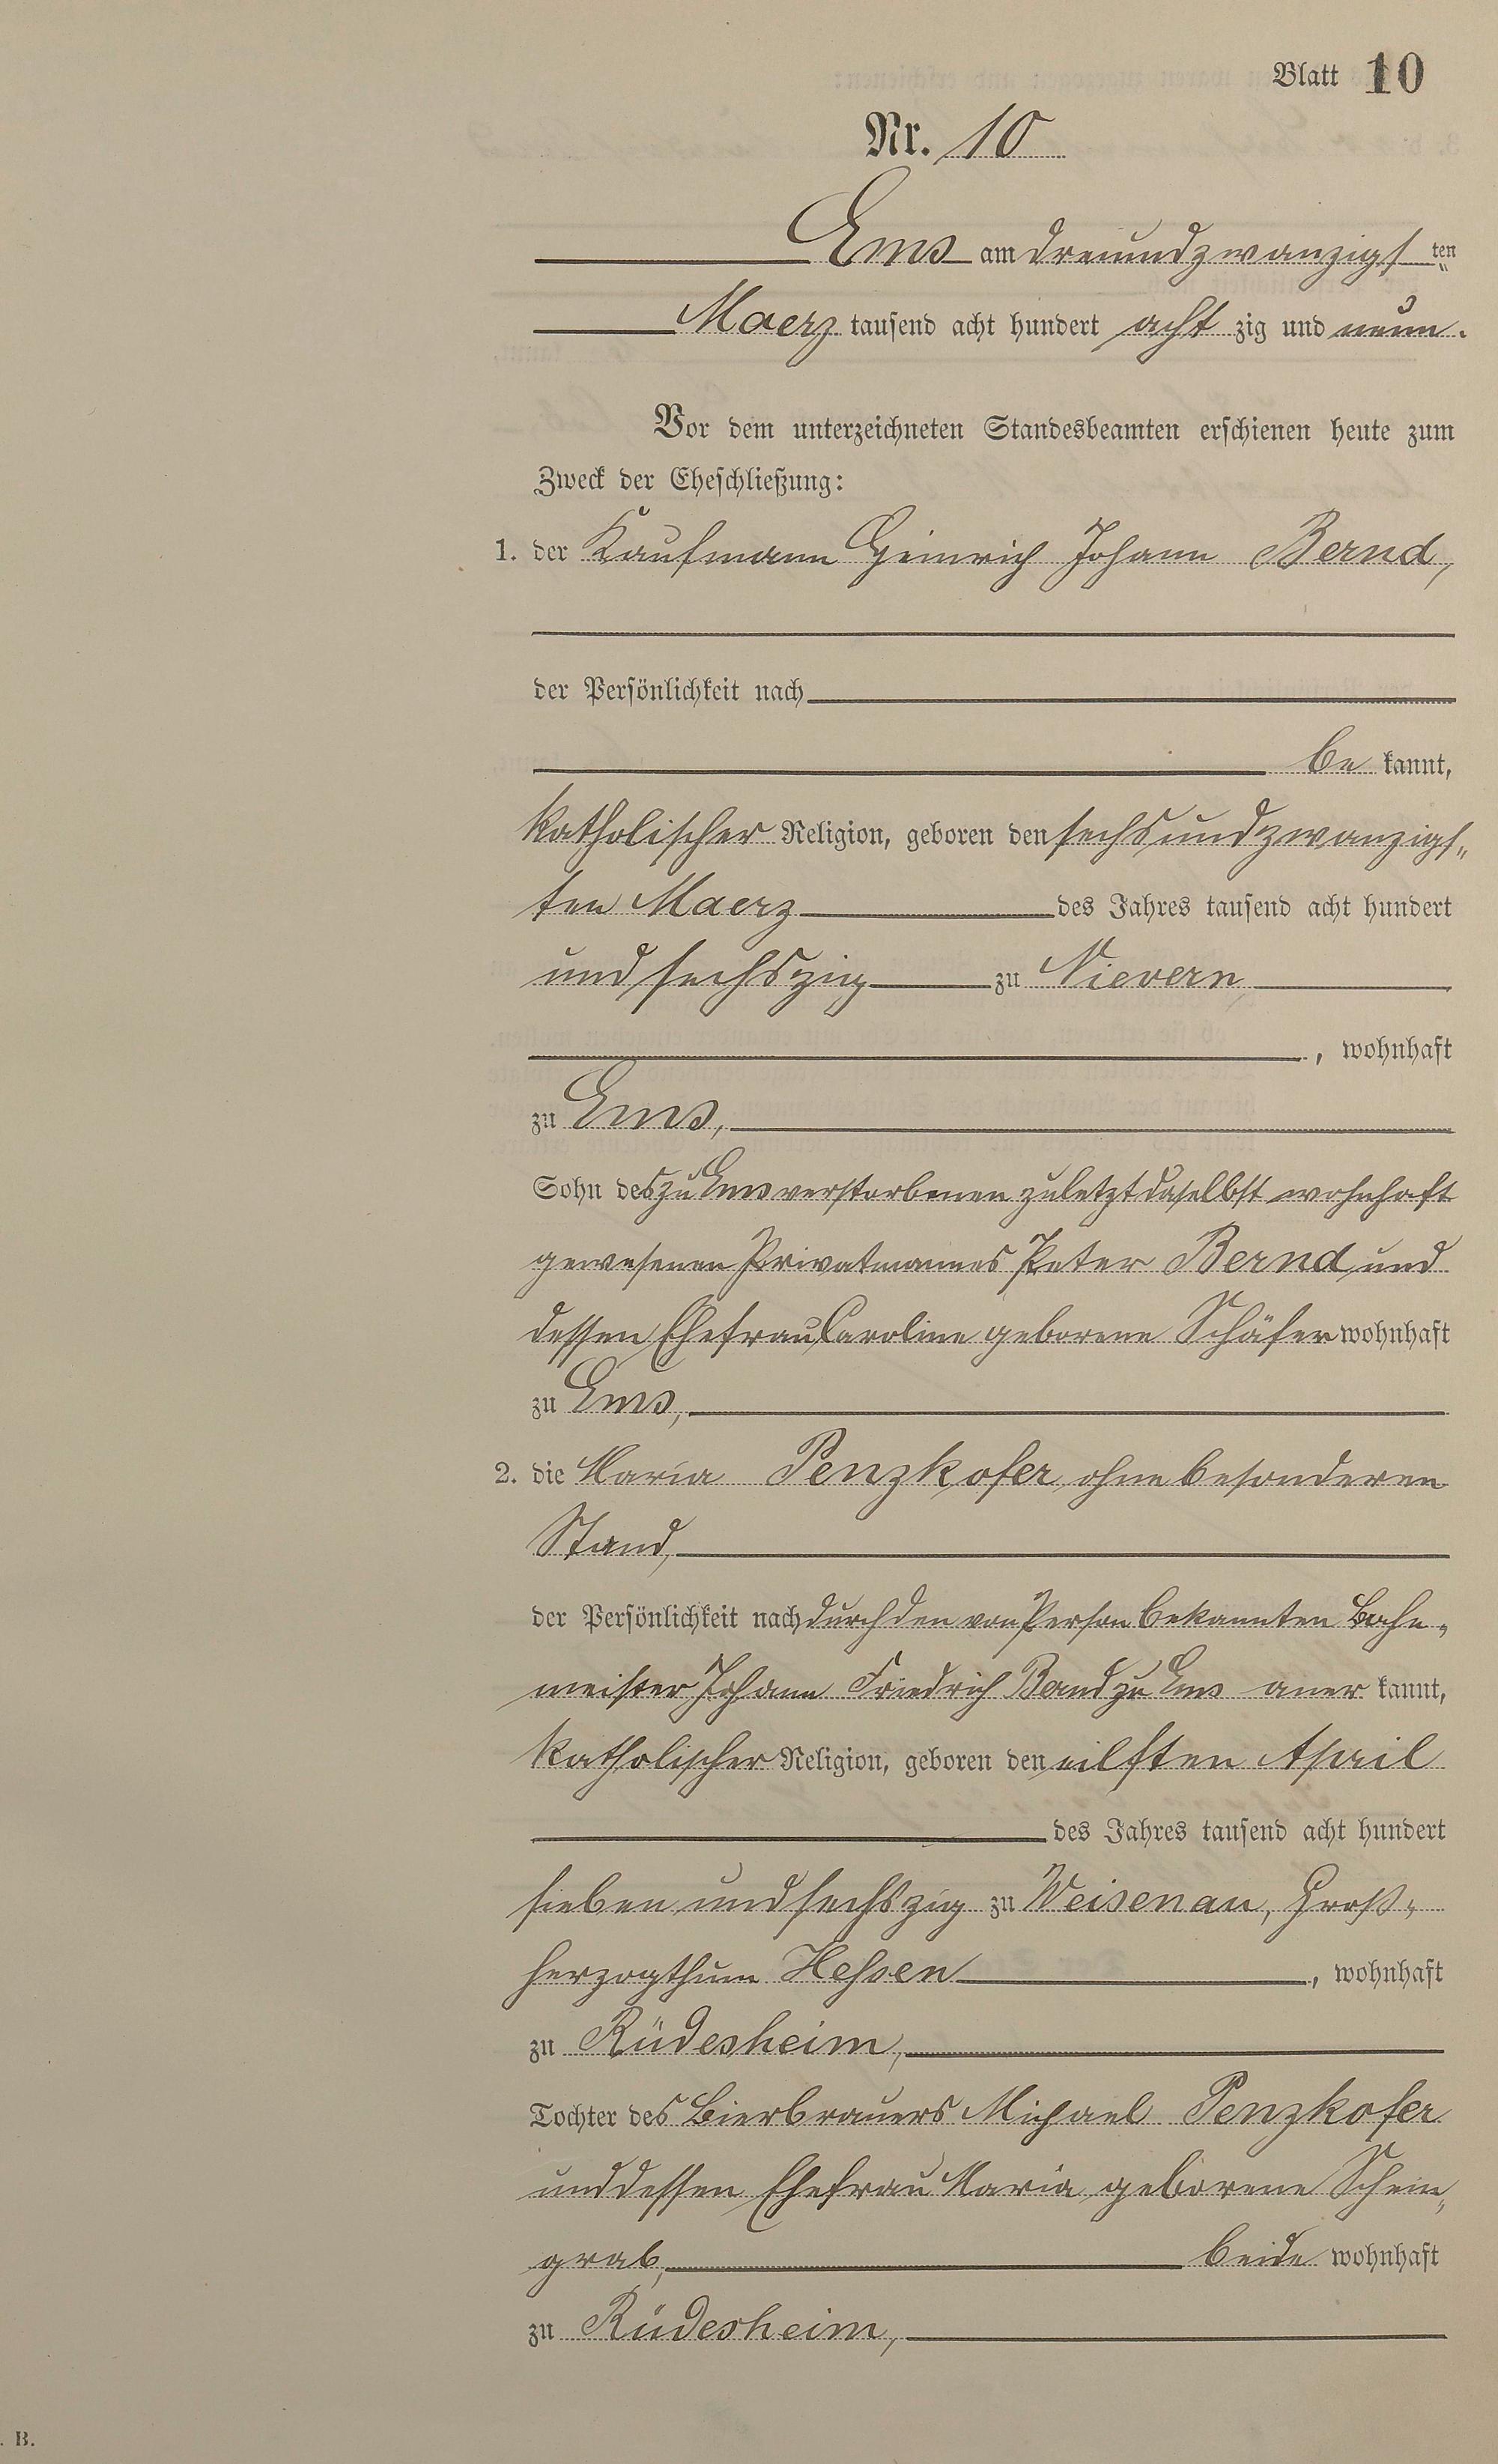 Blatt 10
Nr. 10
Ems am dreiundzwanzigsten
Maerz tausend acht hundert acht zig und neun.
Vor dem unterzeichneten Standesbeamten erschienen heute zum
Zweck der Eheschließung:
1. der Kaufmann Heinrich Johann Bernd,
der Persönlichkeit nach
be kannt,
katholischer Religion, geboren den sechsundzwanzigs„
ten Maerz des Jahres tausend acht hundert
und sechszig zu Nievern
, wohnhaft
zu Ems,
Sohn des zu Ems verstorbenen zuletzt daselbst wohnhaft
gewesenen Privatmannes Peter Bernd und
dessen Ehefrau Caroline geborene Schäfer wohnhaft
zu Ems,
2. die Maria Penzkofer, ohne besonderen
Stand,
der Persönlichkeit nach durch den von Person bekannten Bahn„
meister Johann Friedrich Band zu Ems aner kannt,
katholischer Religion, geboren den eilften April
des Jahres tausend acht hundert
sieben und sechszig zu Weisenau, Groß„
herzogthum Hessen, wohnhaft
zu Rüdesheim,
Tochter des Bierbrauers Michael Penzkofer
und dessen Ehefrau Maria geborene Schein„
grab, beide wohnhaft
zu Rüdesheim,
. B.